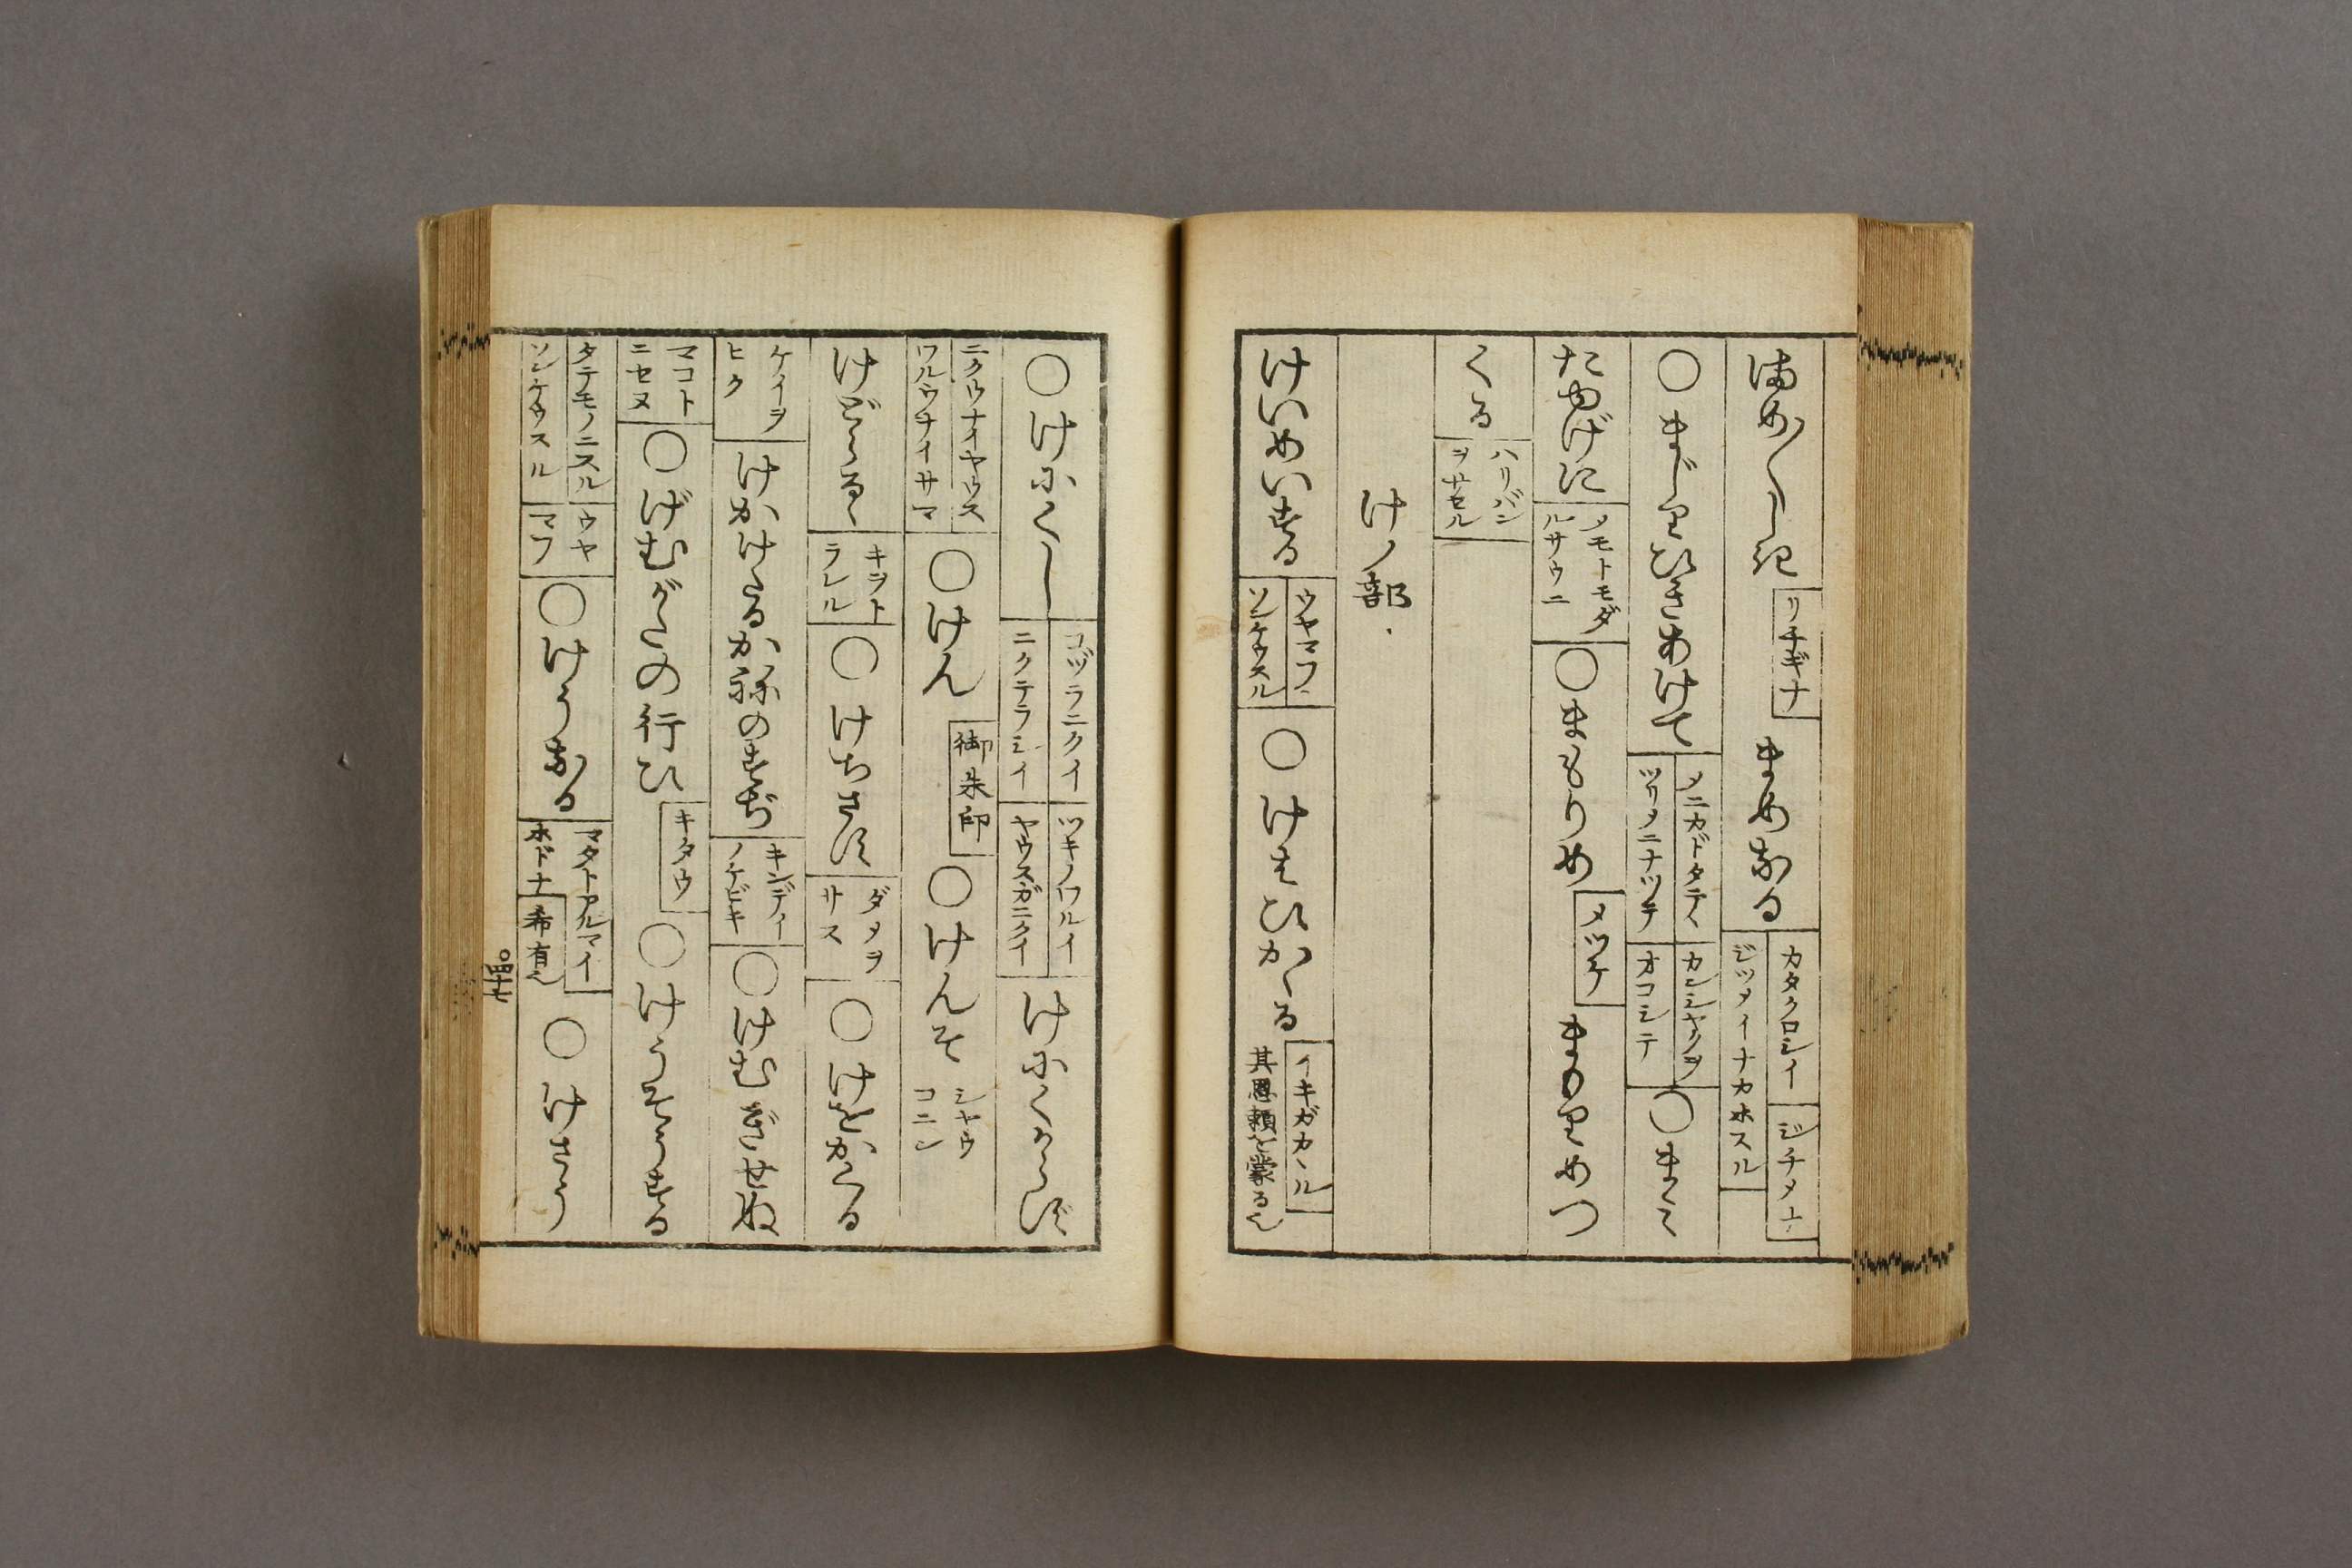 まめ〳〵しき リチギナ まめなる カタクロシイ ジチメナ ジツメイナカホスル
○まじりひきあけて メニカドタテヽ ツリメニナツテ カンシヤクヲ オコシテ ○まこ
たゆげに メモトモダ ルサウニ ○まもりめ メツケ まもりめつ
くる ハリバン ヲサセル
けノ部
けいめいする ウヤマフ ソンケウスル ○けはひかゝる イキガカヽル 其恩頼を蒙る也
○けにくし コヅラニクイ ニクテラシイ ツキノワルイ ヤウスガニクイ けにくからず
ニクウナイヤウス ワルウナイサマ ○けん 御朱印 ○けんそ シヤウ コニン
けどらるゝ キヲト ラレル ○けちさす ダメヲ サス ○けをかくる
ケイヲ ヒク けかけたるかねのすぢ キンデイ ノケビキ ○けむぎせぬ
マコト ニセヌ ○げむがたの行ひ キタウ ○けうそうする
タテモノニスル ソンケウスル ウヤ マフ ○けうなる マタトアルマイ ホドナ 希有也 ○けさう
○四十七